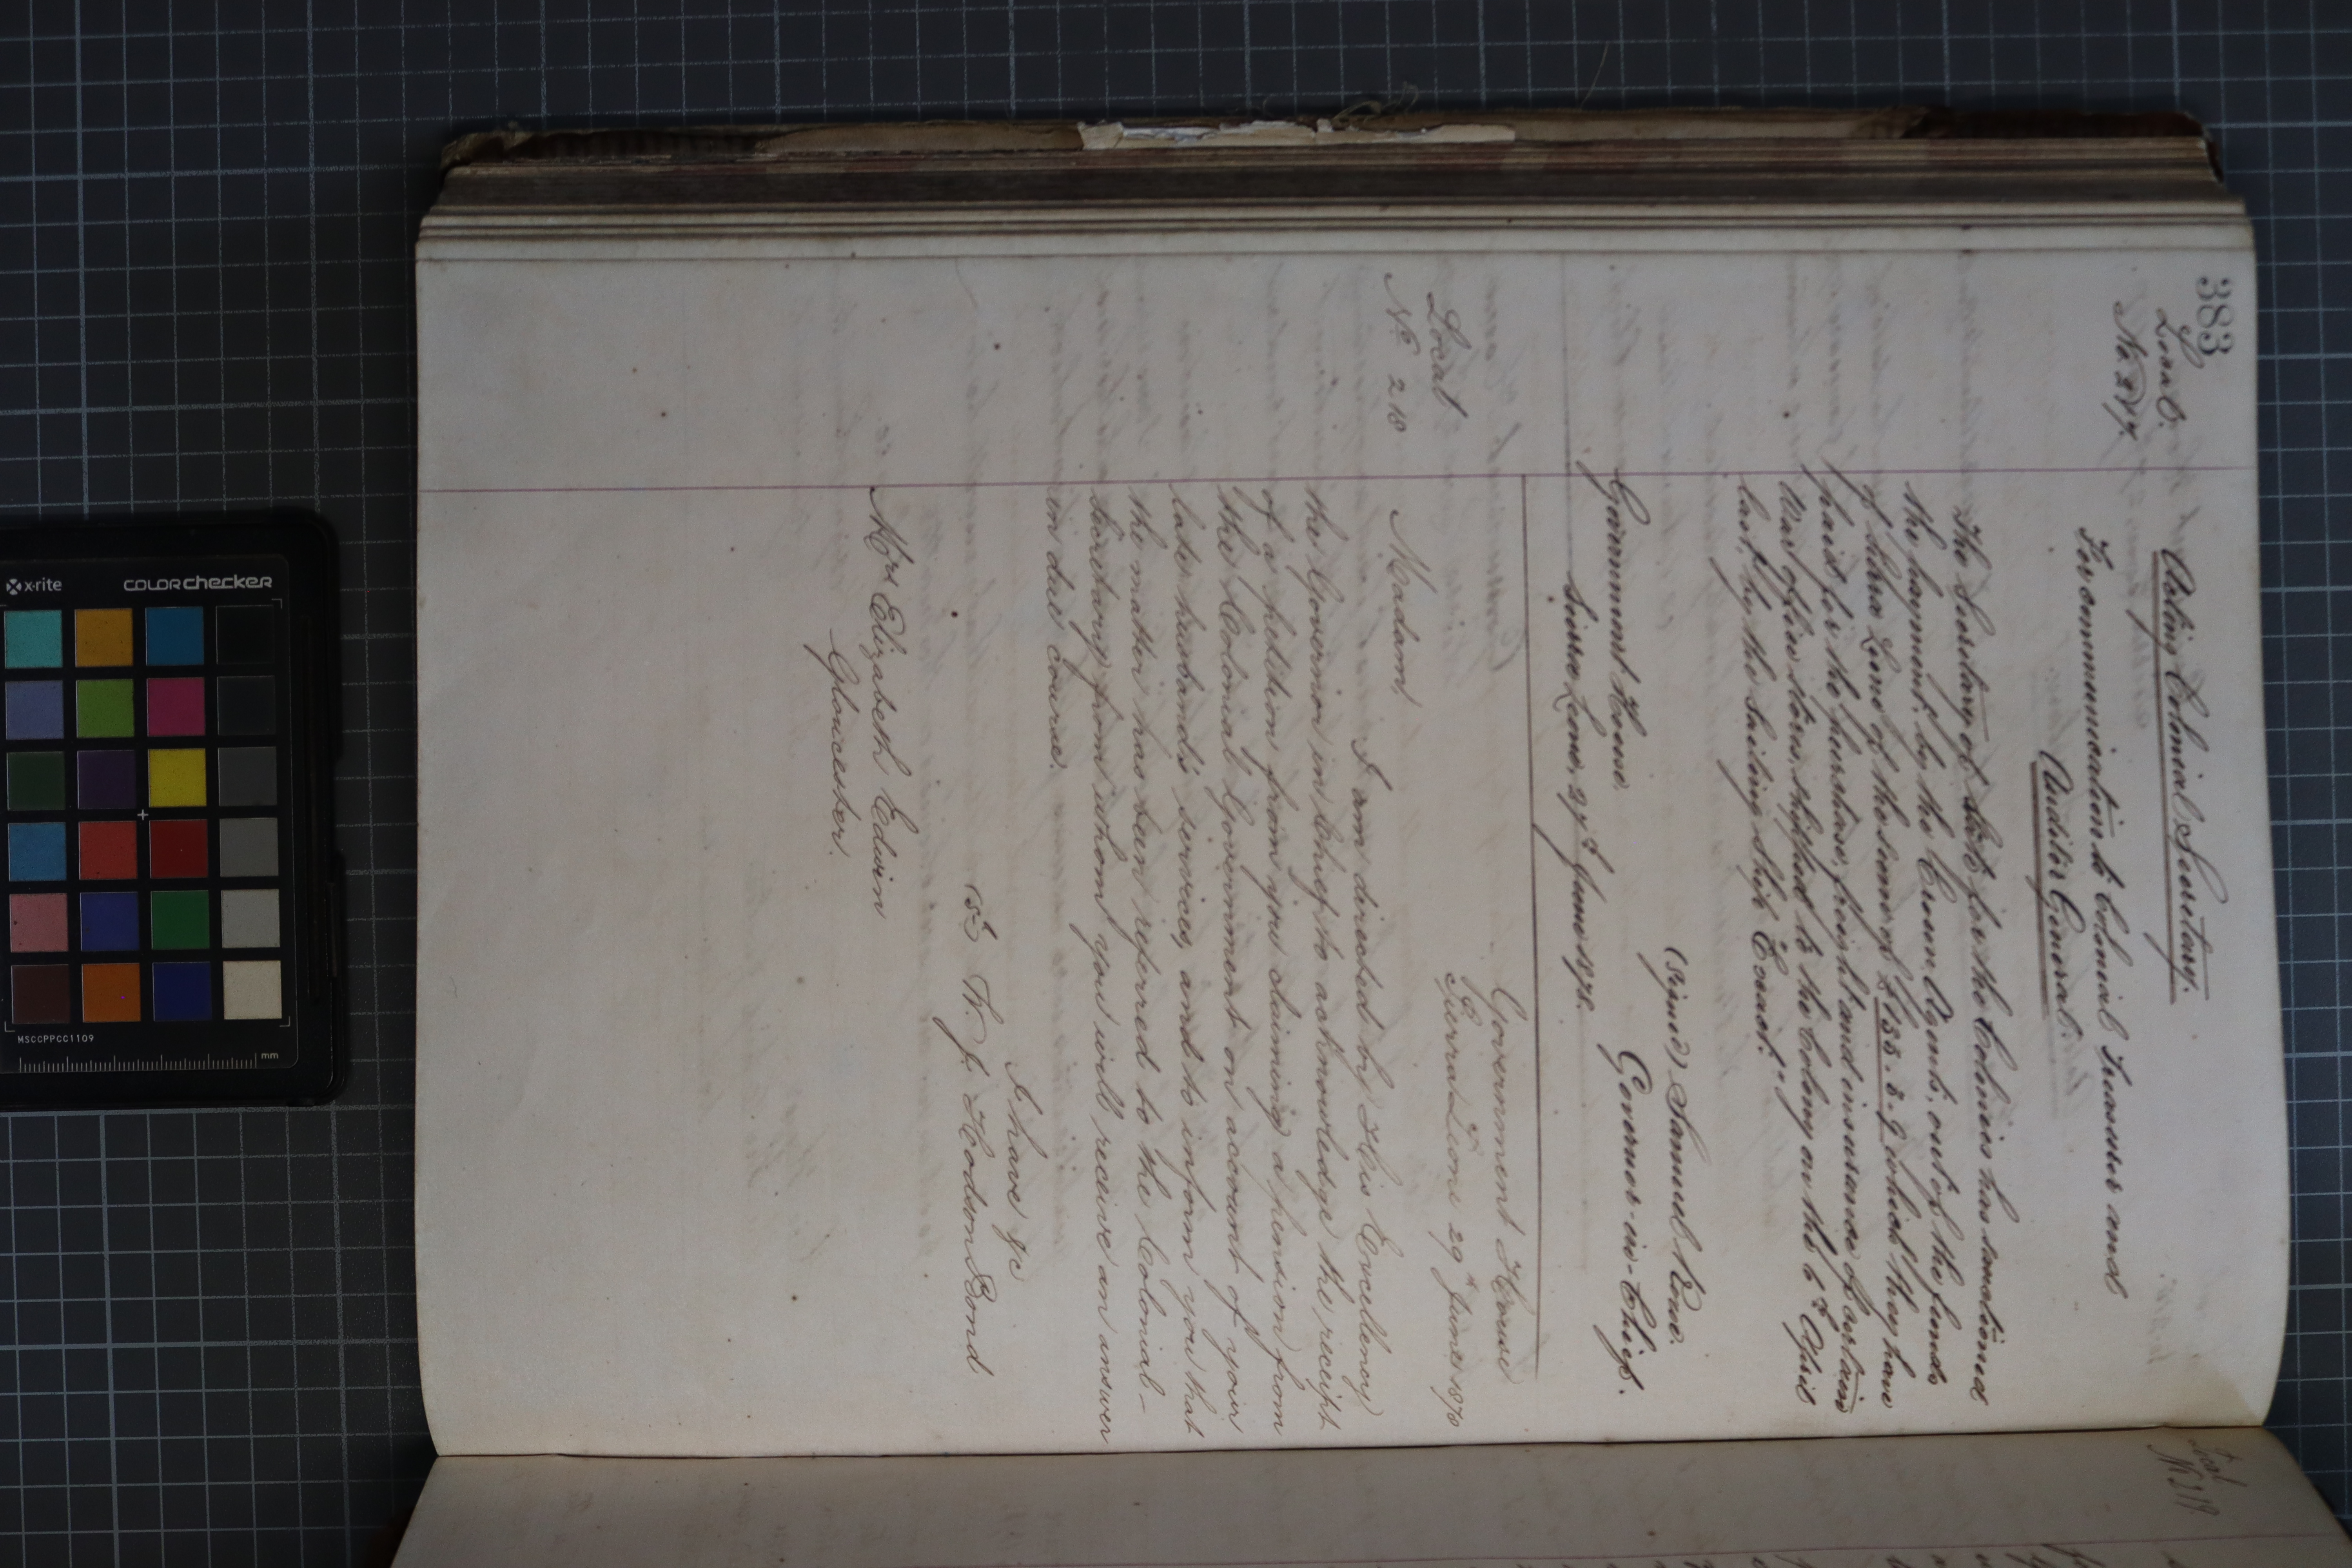 383
Local.
No. 217.
Acting Colonial Secretary.
For communication to Colonial Treasurer and
Auditor General.
The Secretary of State for the Colonies has sanctioned
the payment, by the Crown Agents, out of the funds
of Sierra Leone of the sum of £135. 5. 9 which they have
paid for the purchase, freight and insurance of certain
War Office stores, shipped to the Colony on the 6th April
last, by the Sailing Ship
(Signed) Samuel Rowe.
Governor-in-Chief.
Government House.
Sierra Leone, 27th June 1878.
Local
No 218
Government House
Sierra Leone 29th June 1878
Madam,
I am directed by His Excellency
the Governor in Chief to acknowledge the receipt
of a petition from you claiming a pension from
the Colonial Government on account of your
late husband's services, and to inform you that
the matter has been referred to the Colonial-
Secretary from whom you will receive an answer
in due course.
I have &c
(Sd) T. J. Hodson Bond
Mrs Elizabeth Edwin
Gloucester.
Local
No 219.
x-rite
colorchecker
MSCCPPCC1109
mm